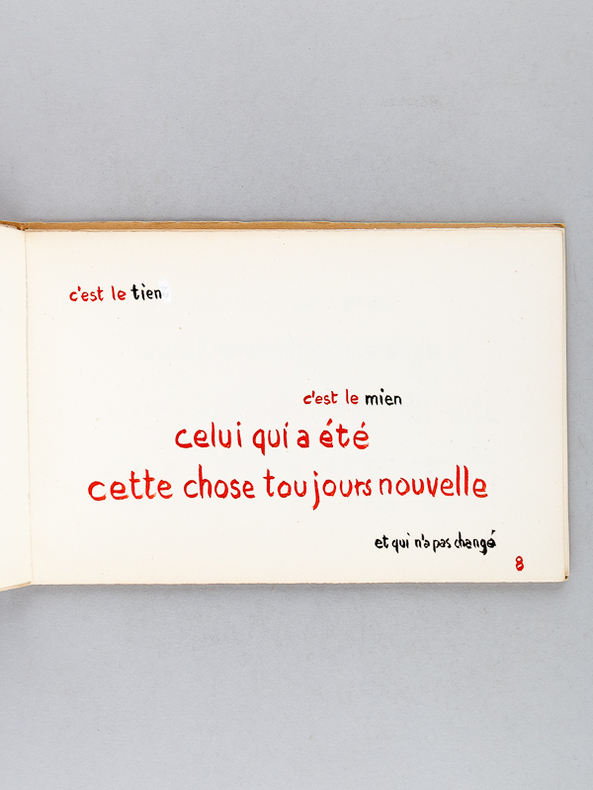 c'est le tien
c'est le mien
celui qui a été
cette chose toujours nouvelle
et qui n'a pas changé
8